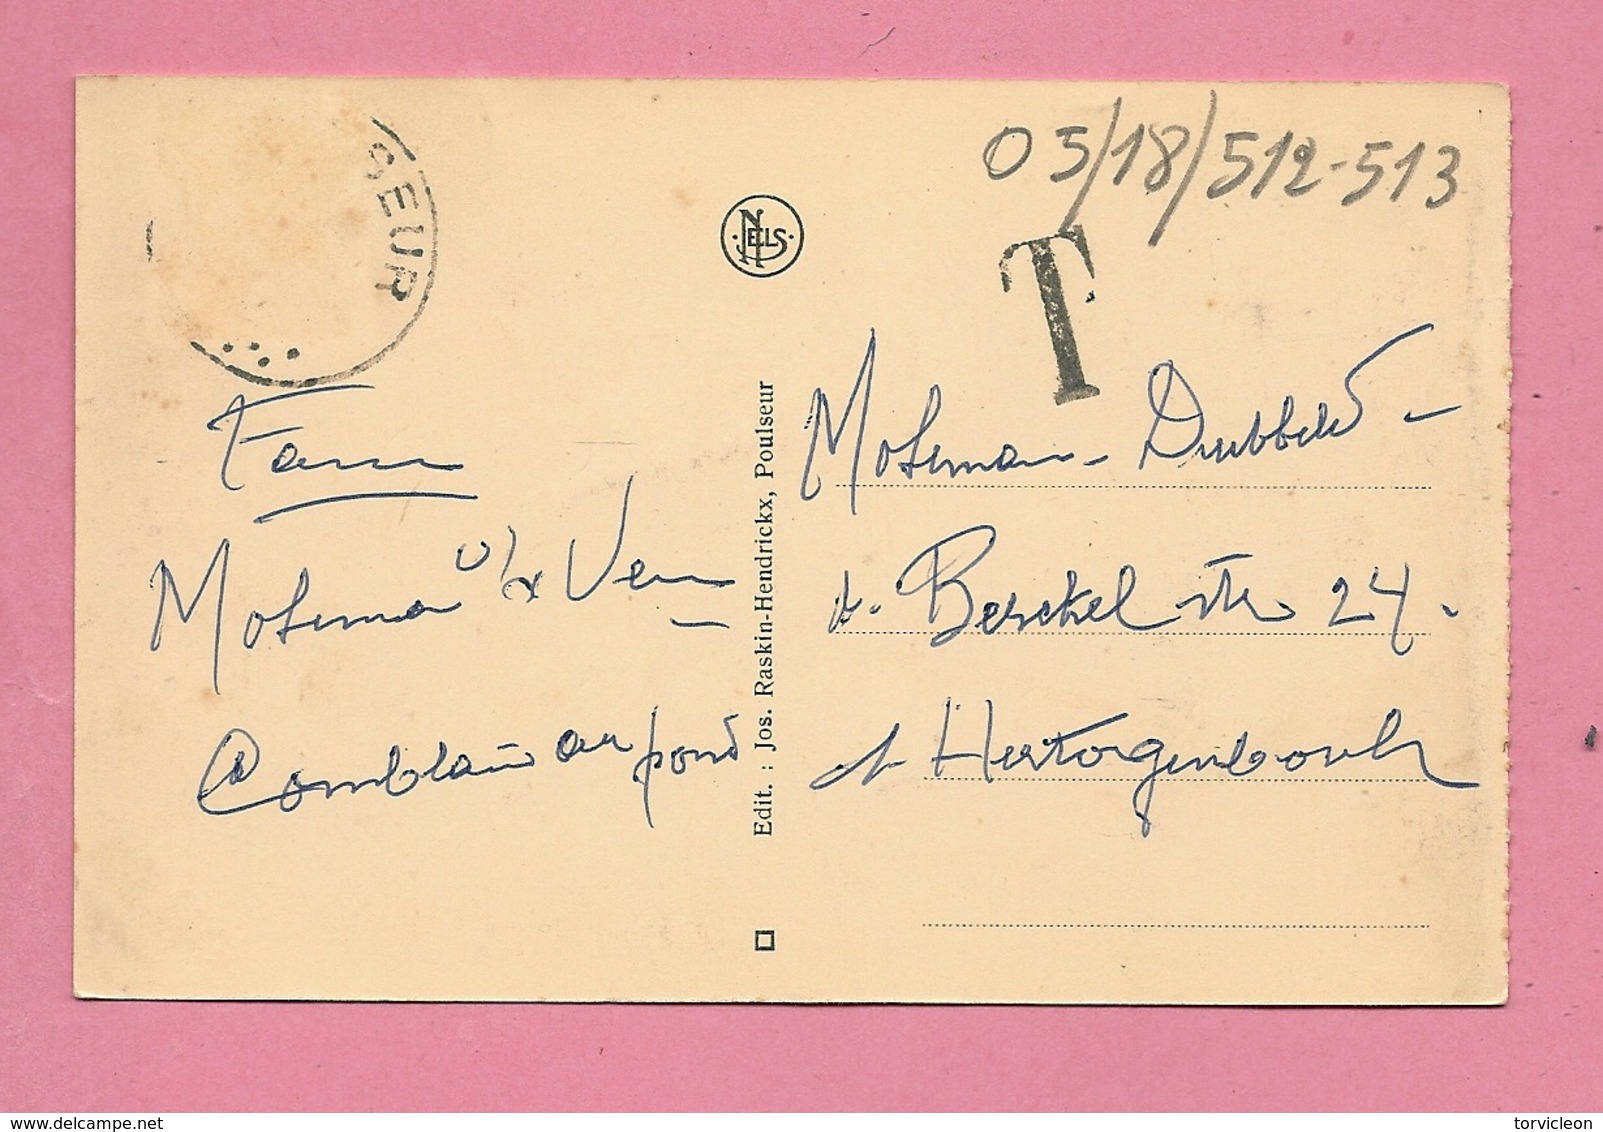 05/18/512-513
SEUR
NELS
T
Fam
Moleman v/d Ven
Comblain au pond
Edit. : Jos. Raskin-Hendrickx, Poulseur
Moleman - Dubbeld -
v. Berckel str 24.
Hertogenbosch
delcampe.net
torvicleon